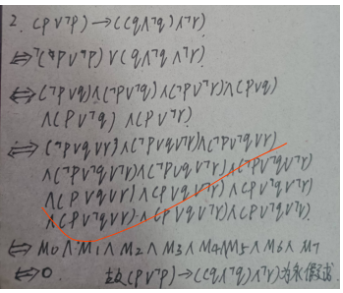 2. (P∨¬P)→((q∧¬q)∧¬r)
⇔¬(¬P∨¬P)∨(q∧¬q∧¬r)
⇔(¬P∨q)∧(¬P∨¬q)∧(¬P∨¬r)∧(P∨q)
∧(P∨¬q)∧(P∨¬r)
⇔(¬P∨q∨r)∧(¬P∨q∨¬r)∧(¬P∨¬q∨r)
∧(¬P∨¬q∨¬r)∧(¬P∨q∨¬r)∧(¬P∨¬q∨¬r)
∧(P∨q∨r)∧(P∨q∨¬r)∧(P∨¬q∨r)
∧(P∨¬q∨¬r)∧(P∨q∨¬r)∧(P∨¬q∨¬r)
⇔M0∧M1∧M2∧M3∧M4∧M5∧M6∧M7
⇔0. 故(P∨¬P)→((q∧¬q)∧¬r)为永假式